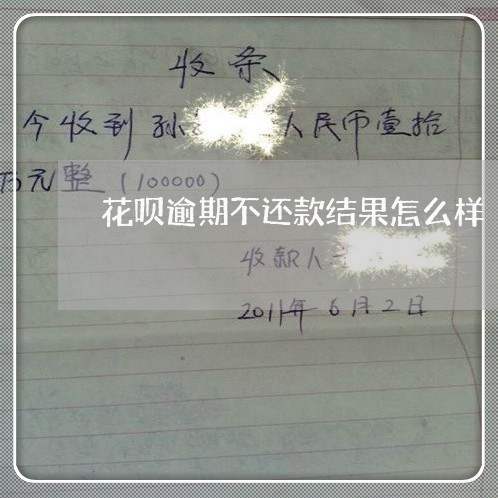 收条
今收到孙 人民币壹拾
万元整(100000)
花呗逾期不还款结果怎么样
收款人
2011年6月2日